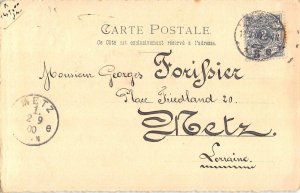 CARTE POSTALE.
Ce Côté est exclusivement réservé à l'adresse.
Monsieur Georges Forissier
Place Friedland 20.
Metz
Lorraine.
METZ
1
2 9
00